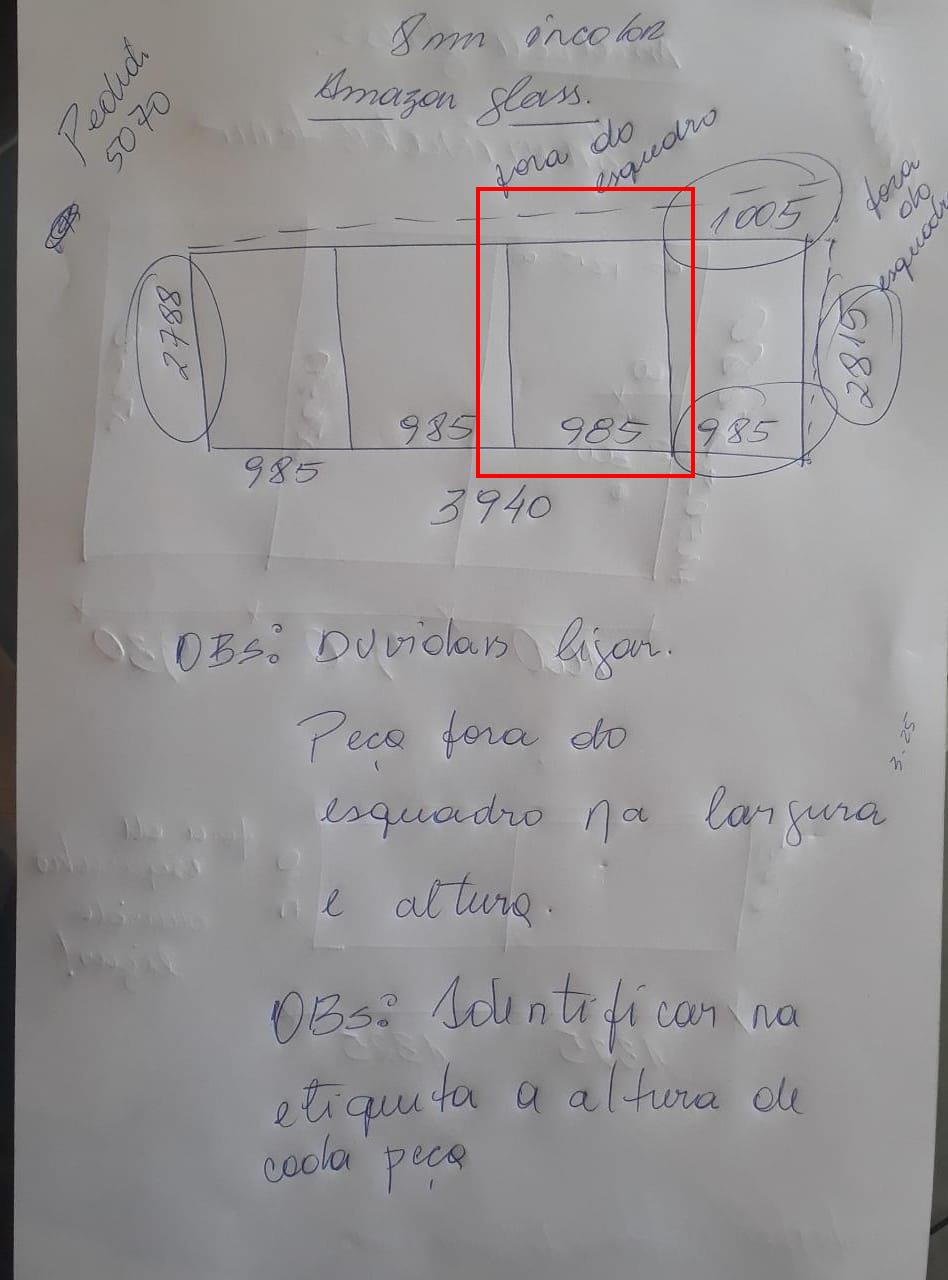 8mm incolor
Amazon glass.
Pedido
5070
fora do
esquadro
1005
fora
do
esquadro
2788
2815
985
985
985
985
3940
OBS: Duvidas ligar.
Peça fora do
esquadro na largura
e altura.
3-25
OBS: Identificar na
etiquita a altura de
cada peça